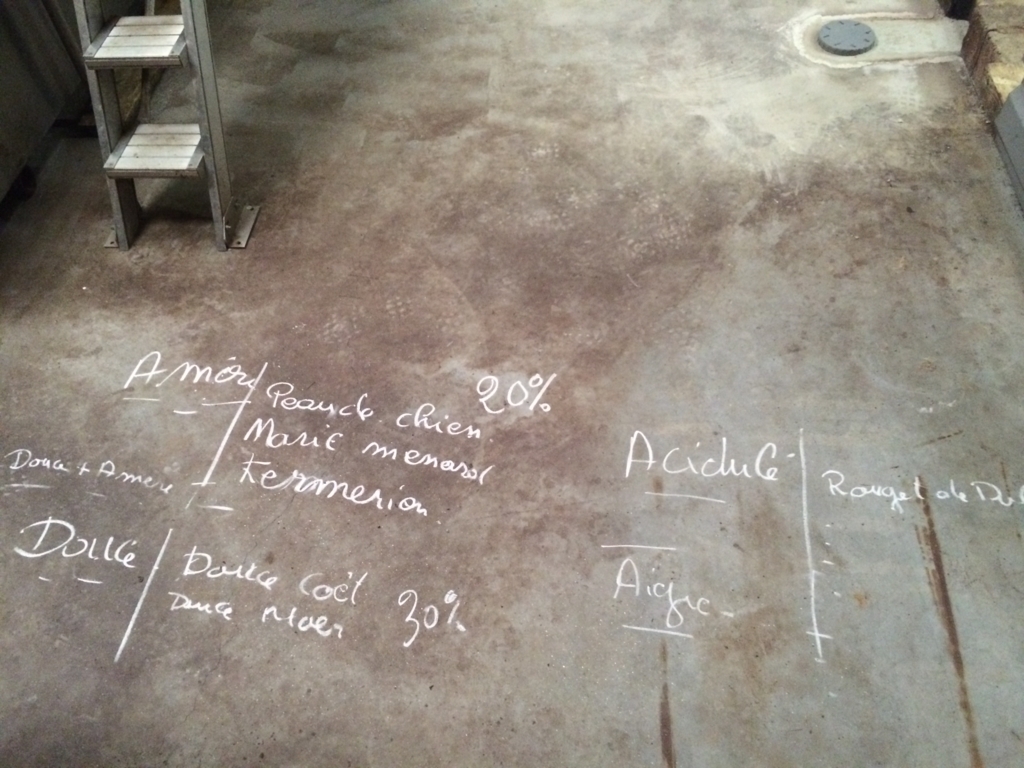 Amér
Peau de chien 20%
Marie menard
Kermerion
Douce + Amère
Douce
Douce Coët 30%
Douce Moen
Acidulé
Rouget de Dol
Aigre